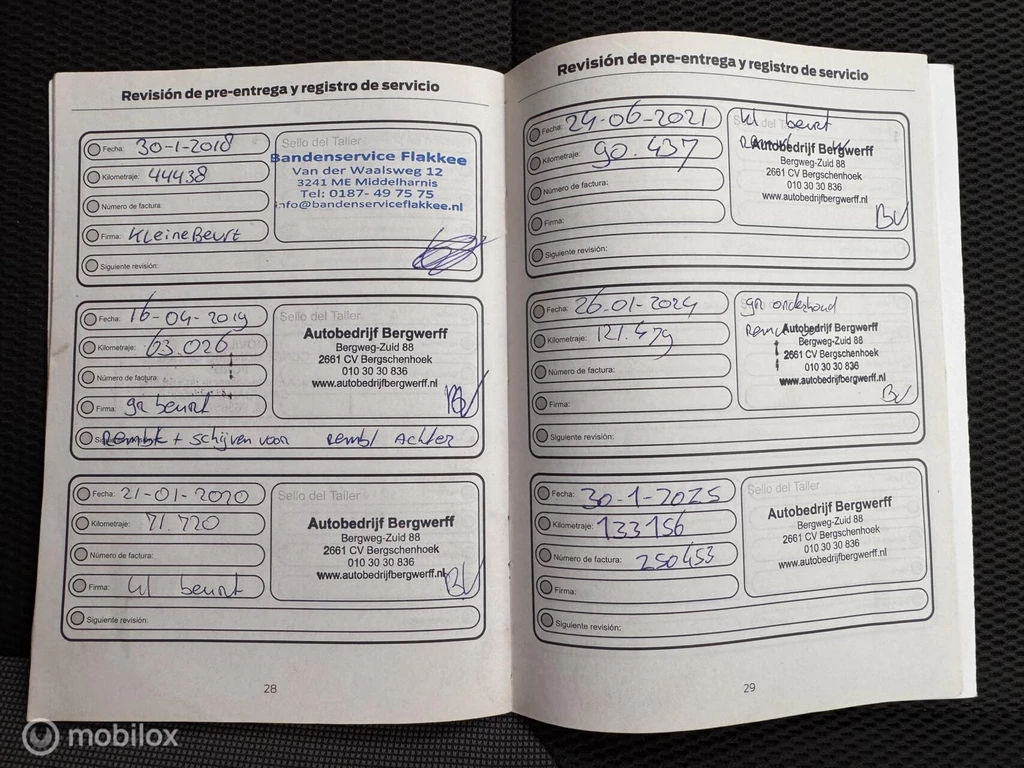 Revisión de pre-entrega y registro de servicio
Fecha: 30-1-2018
Kilometraje: 44438
Número de factura:
Firma: Kleine Beurt
Siguiente revisión:
Sello del Taller
Bandenservice Flakkee
Van der Waalsweg 12
3241 ME Middelharnis
Tel: 0187- 49 75 75
info@bandenserviceflakkee.nl
Fecha: 16-04-2019
Kilometraje: 63.026
Número de factura:
Firma: gr beurt
Rembk + schijven voor rembl Achter
Sello del Taller
Autobedrijf Bergwerff
Bergweg-Zuid 88
2661 CV Bergschenhoek
010 30 30 836
www.autobedrijfbergwerff.nl
Fecha: 21-01-2020
Kilometraje: 71.720
Número de factura:
Firma: kl beurt
Siguiente revisión:
Sello del Taller
Autobedrijf Bergwerff
Bergweg-Zuid 88
2661 CV Bergschenhoek
010 30 30 836
www.autobedrijfbergwerff.nl
28
Revisión de pre-entrega y registro de servicio
Fecha: 24-06-2021
Kilometraje: 90.437
Número de factura:
Firma:
Siguiente revisión:
kl beurt
Autobedrijf Bergwerff
Bergweg-Zuid 88
2661 CV Bergschenhoek
010 30 30 836
www.autobedrijfbergwerff.nl
Fecha: 26-01-2024
Kilometraje: 121.479
Número de factura:
Firma:
Siguiente revisión:
gr onderhoud
Autobedrijf Bergwerff
Bergweg-Zuid 88
2661 CV Bergschenhoek
010 30 30 836
www.autobedrijfbergwerff.nl
Fecha: 30-1-2025
Kilometraje: 133156
Número de factura: 250453
Firma:
Siguiente revisión:
Sello del Taller
Autobedrijf Bergwerff
Bergweg-Zuid 88
2661 CV Bergschenhoek
010 30 30 836
www.autobedrijfbergwerff.nl
29
mobilox